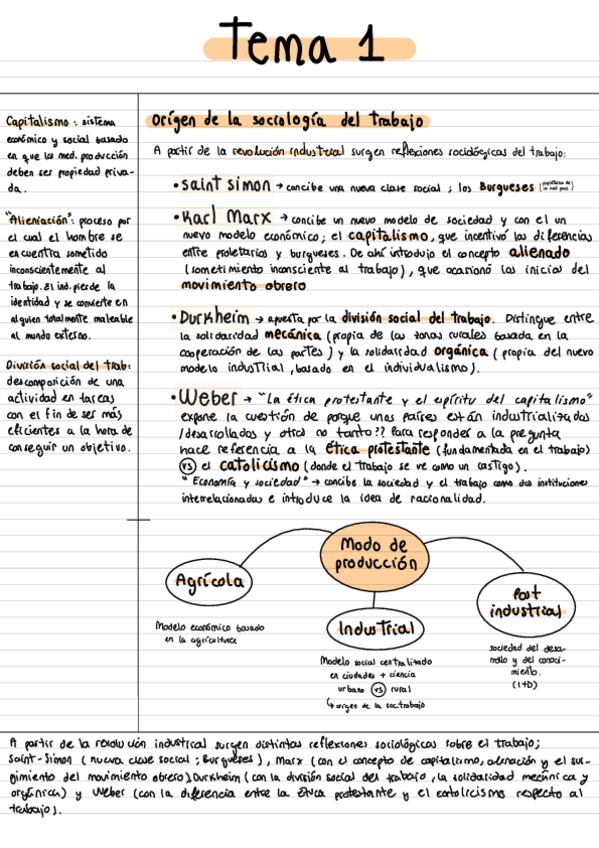 Tema 1
Capitalismo : sistema
económico y social basado
en que los med. producción
deben ser propiedad priva-
da.
"Alienación": proceso por
el cual el hombre se
encuentra sometido
inconscientemente al
trabajo. El ind. pierde la
identidad y se convierte en
alguien totalmente maleable
al mundo externo.
División social del trab:
descomposición de una
actividad en tareas
con el fin de ser más
eficientes a la hora de
conseguir un objetivo.
Orígen de la sociología del trabajo
A partir de la revolución industrial surgen reflexiones sociológicas del trabajo:
• Saint simon → concibe una nueva clase social ; los Burgueses
• Karl Marx → concibe un nuevo modelo de sociedad y con el un
nuevo modelo económico; el capitalismo, que incentivó las diferencias
entre proletarios y burgueses. De ahí introdujo el concepto alienado
(sometimiento inconsciente al trabajo), que ocasionó los inicios del
movimiento obrero
• Durkheim → apuesta por la división social del trabajo. Distingue entre
la solidaridad mecánica (propia de las zonas rurales basada en la
cooperación de las partes) y la solidaridad orgánica (propia del nuevo
modelo industrial, basado en el individualismo).
• Weber → "La ética protestante y el espíritu del capitalismo"
expone la cuestión de porque unos países están industrializados
/desarrollados y otros no tanto?? Para responder a la pregunta
hace referencia a la Ética protestante (fundamentada en el trabajo)
vs el catolicismo (donde el trabajo se ve como un castigo).
"Economía y sociedad" → concibe la sociedad y el trabajo como dos instituciones
interrelacionadas e introduce la idea de racionalidad.
Modo de
producción
Agrícola
Modelo económico basado
en la agricultura
Industrial
Modelo social centralizado
en ciudades + ciencia
urbano vs rural
↳ origen de la soc. trabajo
Post
industrial
sociedad del desa-
rrollo y del conoci-
miento.
(I+D)
A partir de la revolución industrial surgen distintas reflexiones sociológicas sobre el trabajo;
Saint-Simon (nueva clase social; Burgueses), Marx (con el concepto de capitalismo, alienación y el sur-
gimiento del movimiento obrero) Durkheim (con la división social del trabajo, la solidaridad mecánica y
orgánica) y Weber (con la diferencia entre la Ética protestante y el catolicismo respecto al
trabajo).